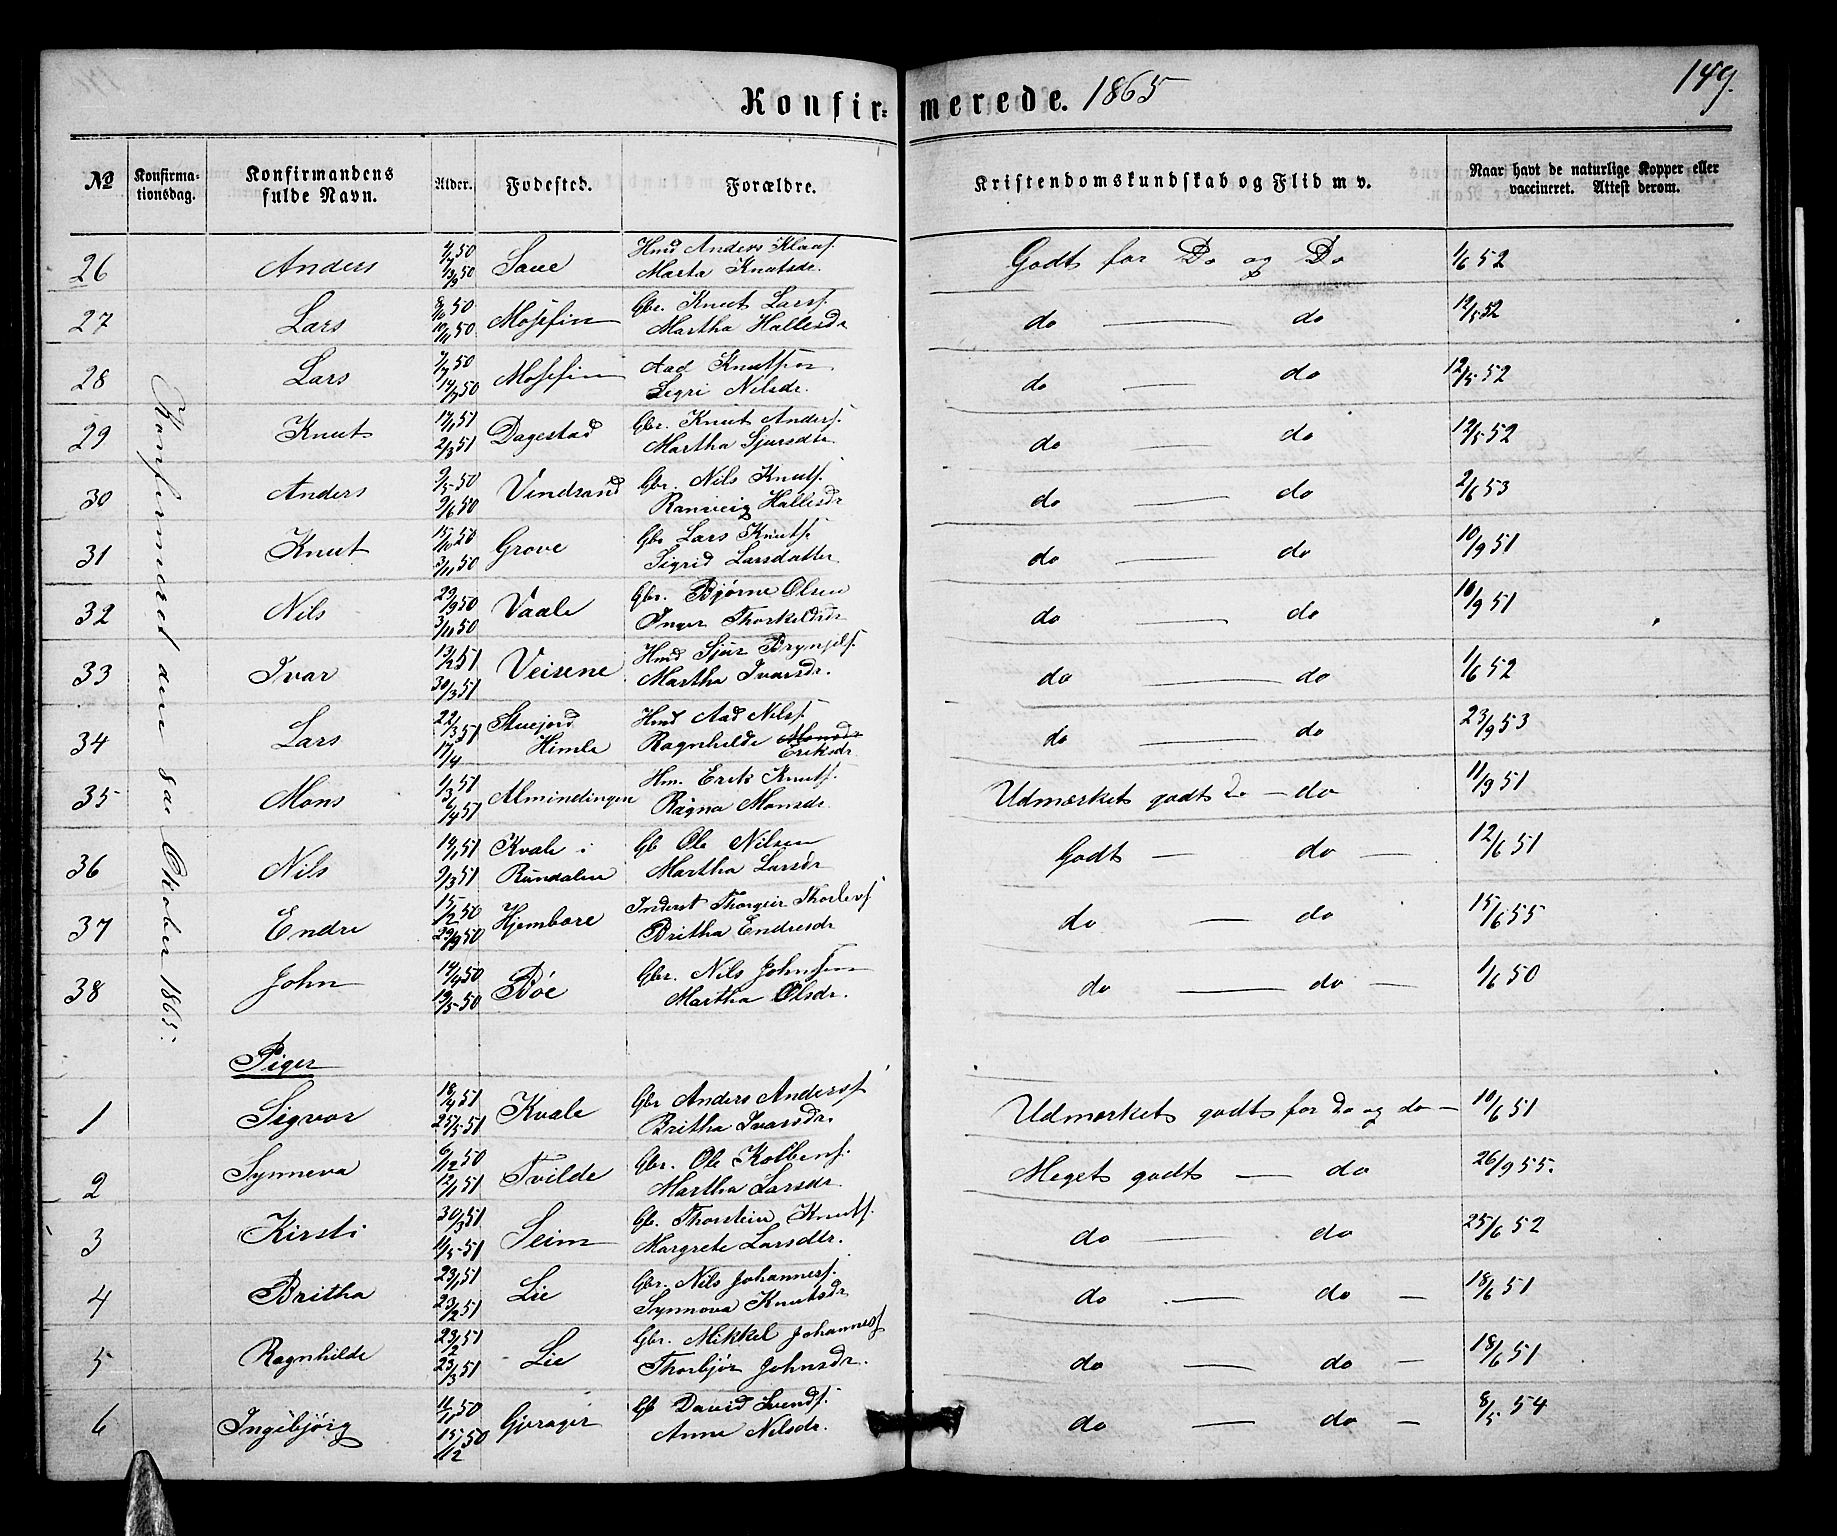 Konfirmerede. 1865
149.
№ Konfirmationsdag. Konfirmandens fulde Navn. Alder. Fødested. Forældre. Kristendomskundskab og Flid m v. Naar havt de naturlige Kopper eller vaccineret. Attest derom.
Konfirmeret den 8de Oktober 1865.
26 Anders 4/7 50 13/9 50 Saue Hmd Anders Klaasf. Marta Knutsdr. Godt for Do og Do 1/6 52
27 Lars 8/10 50 10/11 50 Mosefin Gbr. Knut Larsf. Martha Hallesdr do do 12/5 52
28 Lars 7/7 50 14/7 50 Mosefin Aad Knutson Segri Nilsdr. do do 12/5 52
29 Knut 17/1 51 2/3 51 Dagestad Gbr. Knut Andersf. Martha Sjursdtr. do do 12/5 52
30 Anders 9/5 50 9/6 50 Vindsand Gbr. Nils Knutsf. Ranveig Hallesdr do do 2/6 53
31 Knut 15/10 50 3/11 50 Grove Gbr Lars Knutsf. Sigrid Larsdatter do do 10/9 51
32 Nils 29/9 50 3/11 50 Vaale Gbr. Bjørne Olsen Inger Thorkeldsdr do do 10/9 51
33 Ivar 13/2 51 30/3 51 Veisene Hmd Sjur Brynjelsf. Martha Ivarsdr. do do 1/6 52
34 Lars 22/3 51 17/4 Skuejord Himle Hmd Aad Nilsf. Ragnhilde Monsdr Eriksdr do do 23/9 53
35 Mons 1/3 51 6/4 51 Almindingen Hm. Erik Knutsf. Ragna Monsdr. Udmærket godt Do - do 11/9 51
36 Nils 14/1 51 2/3 51 Kvale i Rundalen Gb Ole Nilsen Martha Larsdr Godt - do - 12/6 51
37 Endre 15/12 50 29/9 50 Hjembore Inderst Thorgeir Thorlevsf Britha Endresdr do - do 15/6 55
38 John 14/4 50 19/5 50 Bøe Gbr. Nils Johnsen Martha Olsdr. do do - 1/6 50
Piger
1 Sigvor 18/4 51 25/5 51 Kvale Gbr Anders Andersf Britha Ivarsdr. Udmærket godt for Do og do - 10/6 51
2 Synneva 6/12 50 12/1 51 Tvilde Gbr. Ole Kolbensf. Martha Larsdr. Meget godt - do 26/9 55.
3 Kirsti 30/3 51 11/5 51 Seim Gb. Thorstein Knutsf. Margrete Larsdtr. do do 25/6 52
4 Britha 23/1 51 23/2 51 Lie Gbr. Nils Johannesf. Synnova Knutsdr do - do - 18/6 51
5 Ragnhilde 23/2 51 23/3 51 Lie Gbr. Mikkel Johannesf Thorbjør Johnsdr. do - do - 18/6 51
6 Ingebjørg 11/11 50 15/12 50 Gjerager Gb David Svendsf. Anne Nilsdr. do - do - 8/5 54